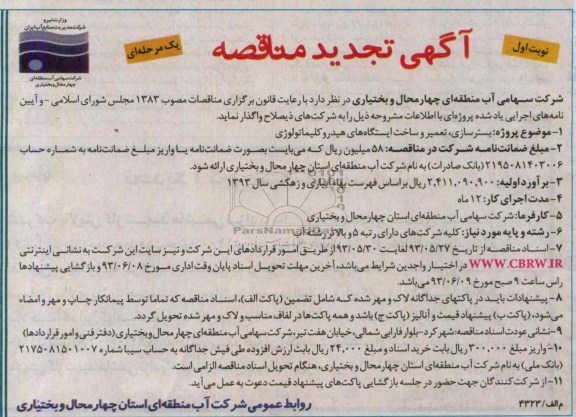 وزارت نیرو
شرکت مدیریت منابع آب ایران
شرکت سهامی آب منطقه‌ای
چهارمحال و بختیاری
نوبت اول
آگهی تجدید مناقصه
یک مرحله‌ای
شرکت سهامی آب منطقه‌ای چهارمحال و بختیاری در نظر دارد با رعایت قانون برگزاری مناقصات مصوب ۱۳۸۳ مجلس شورای اسلامی – و آیین
نامه‌های اجرایی یاد شده پروژه‌ای با اطلاعات مشروحه ذیل را به شرکت‌های ذیصلاح واگذار نماید.
۱- موضوع پروژه: بسترسازی، تعمیر و ساخت ایستگاه‌های هیدروکلیماتولوژی
۲- مبلغ ضمانت‌نامه شرکت در مناقصه: ۵۸ میلیون ریال که می‌بایست بصورت ضمانت‌نامه یا واریز مبلغ ضمانت‌نامه به شماره حساب
۲۱۹۵۰۸۱۴۰۳۰۰۶ (بانک صادرات) به نام شرکت آب منطقه‌ای استان چهار محال و بختیاری ارائه شود.
۳- برآورد اولیه: ۲,۴۱۱,۰۹۰,۹۰۰ ریال براساس فهرست بهاء آبیاری و زهکشی سال ۱۳۹۳
۴- مدت اجرای کار: ۱۲ ماه
۵- کارفرما: شرکت سهامی آب منطقه‌ای استان چهارمحال و بختیاری
۶- رشته و پایه مورد نیاز: کلیه شرکت‌های دارای رتبه ۵ و بالاتر رشته آب
۷- اسناد مناقصه از تاریخ ۹۳/۰۵/۲۷ لغایت ۹۳/۰۵/۳۰ از طریق امور قراردادهای این شرکت و نیز سایت این شرکت به نشانی اینترنتی
WWW.CBRW.IR در اختیار واجدین شرایط می‌باشد، آخرین مهلت تحویل اسناد پایان وقت اداری مورخ ۹۳/۰۶/۰۸ و بازگشایی پیشنهادها
راس ساعت ۹ صبح مورخ ۹۳/۰۶/۰۹ می‌باشد.
۸- پیشنهادات باید در پاکتهای جداگانه لاک و مهر شده که شامل تضمین (پاکت الف)، اسناد مناقصه که تماما توسط پیمانکار چاپ و مهر و امضاء
می‌شود، (پاکت ب) پیشنهاد قیمت و آنالیز (پاکت ج) باشد و همه پاکت‌ها در لفاف مناسب و لاک و مهر شده تحویل گردد.
۹- نشانی عودت اسناد مناقصه: شهرکرد- بلوار فارابی شمالی، خیابان هفت تیر، شرکت سهامی آب منطقه‌ای چهارمحال و بختیاری (دفتر فنی و امور قراردادها)
۱۰- واریز مبلغ ۳۰۰,۰۰۰ ریال بابت خرید اسناد و مبلغ ۲۴,۰۰۰ ریال بابت ارزش افزوده طی فیش جداگانه به حساب سیبا شماره ۲۱۷۵۰۸۱۵۰۱۰۰۷
(بانک ملی) به نام شرکت آب منطقه‌ای استان چهارمحال و بختیاری، هنگام تحویل اسناد مناقصه الزامی است.
۱۱- از شرکت کنندگان جهت حضور در جلسه بازگشایی پاکت‌های پیشنهاد قیمت دعوت به عمل می‌آید.
م الف/ ۴۳۲۳
روابط عمومی شرکت آب منطقه‌ای استان چهارمحال و بختیاری